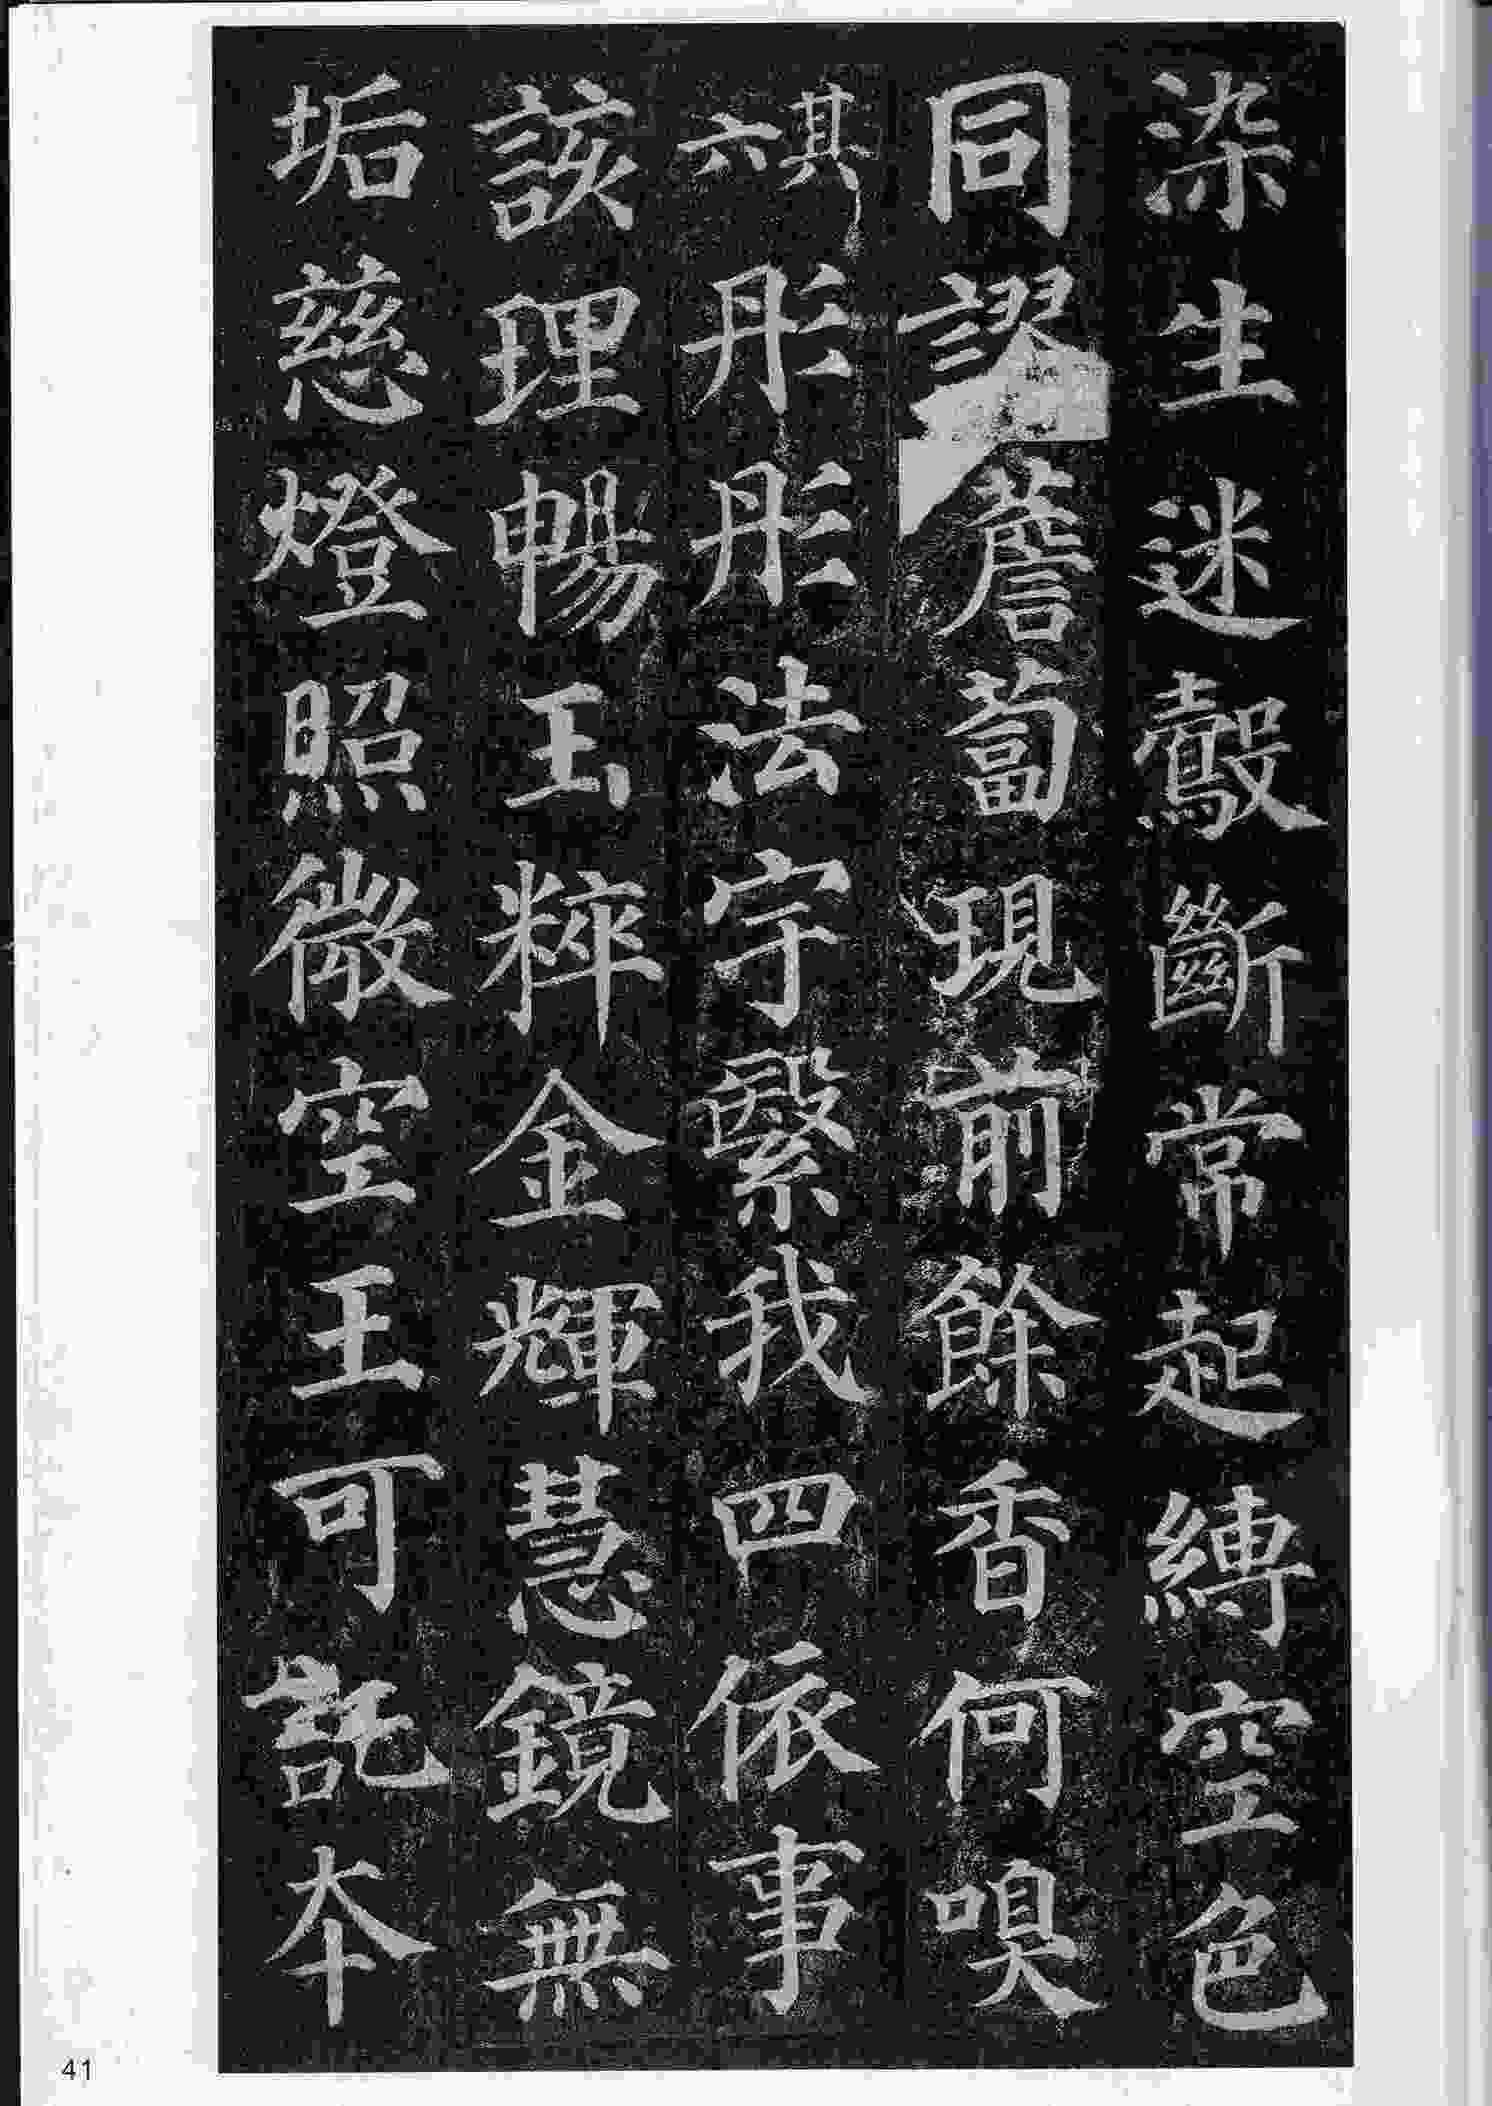 染生迷鷇斷常起縛空色
同謬薝蔔現前餘香何嗅
其六彤彤法宇繄我四依事
該理暢玉粹金輝慧鏡無
垢慈燈照微空王可託夲
41